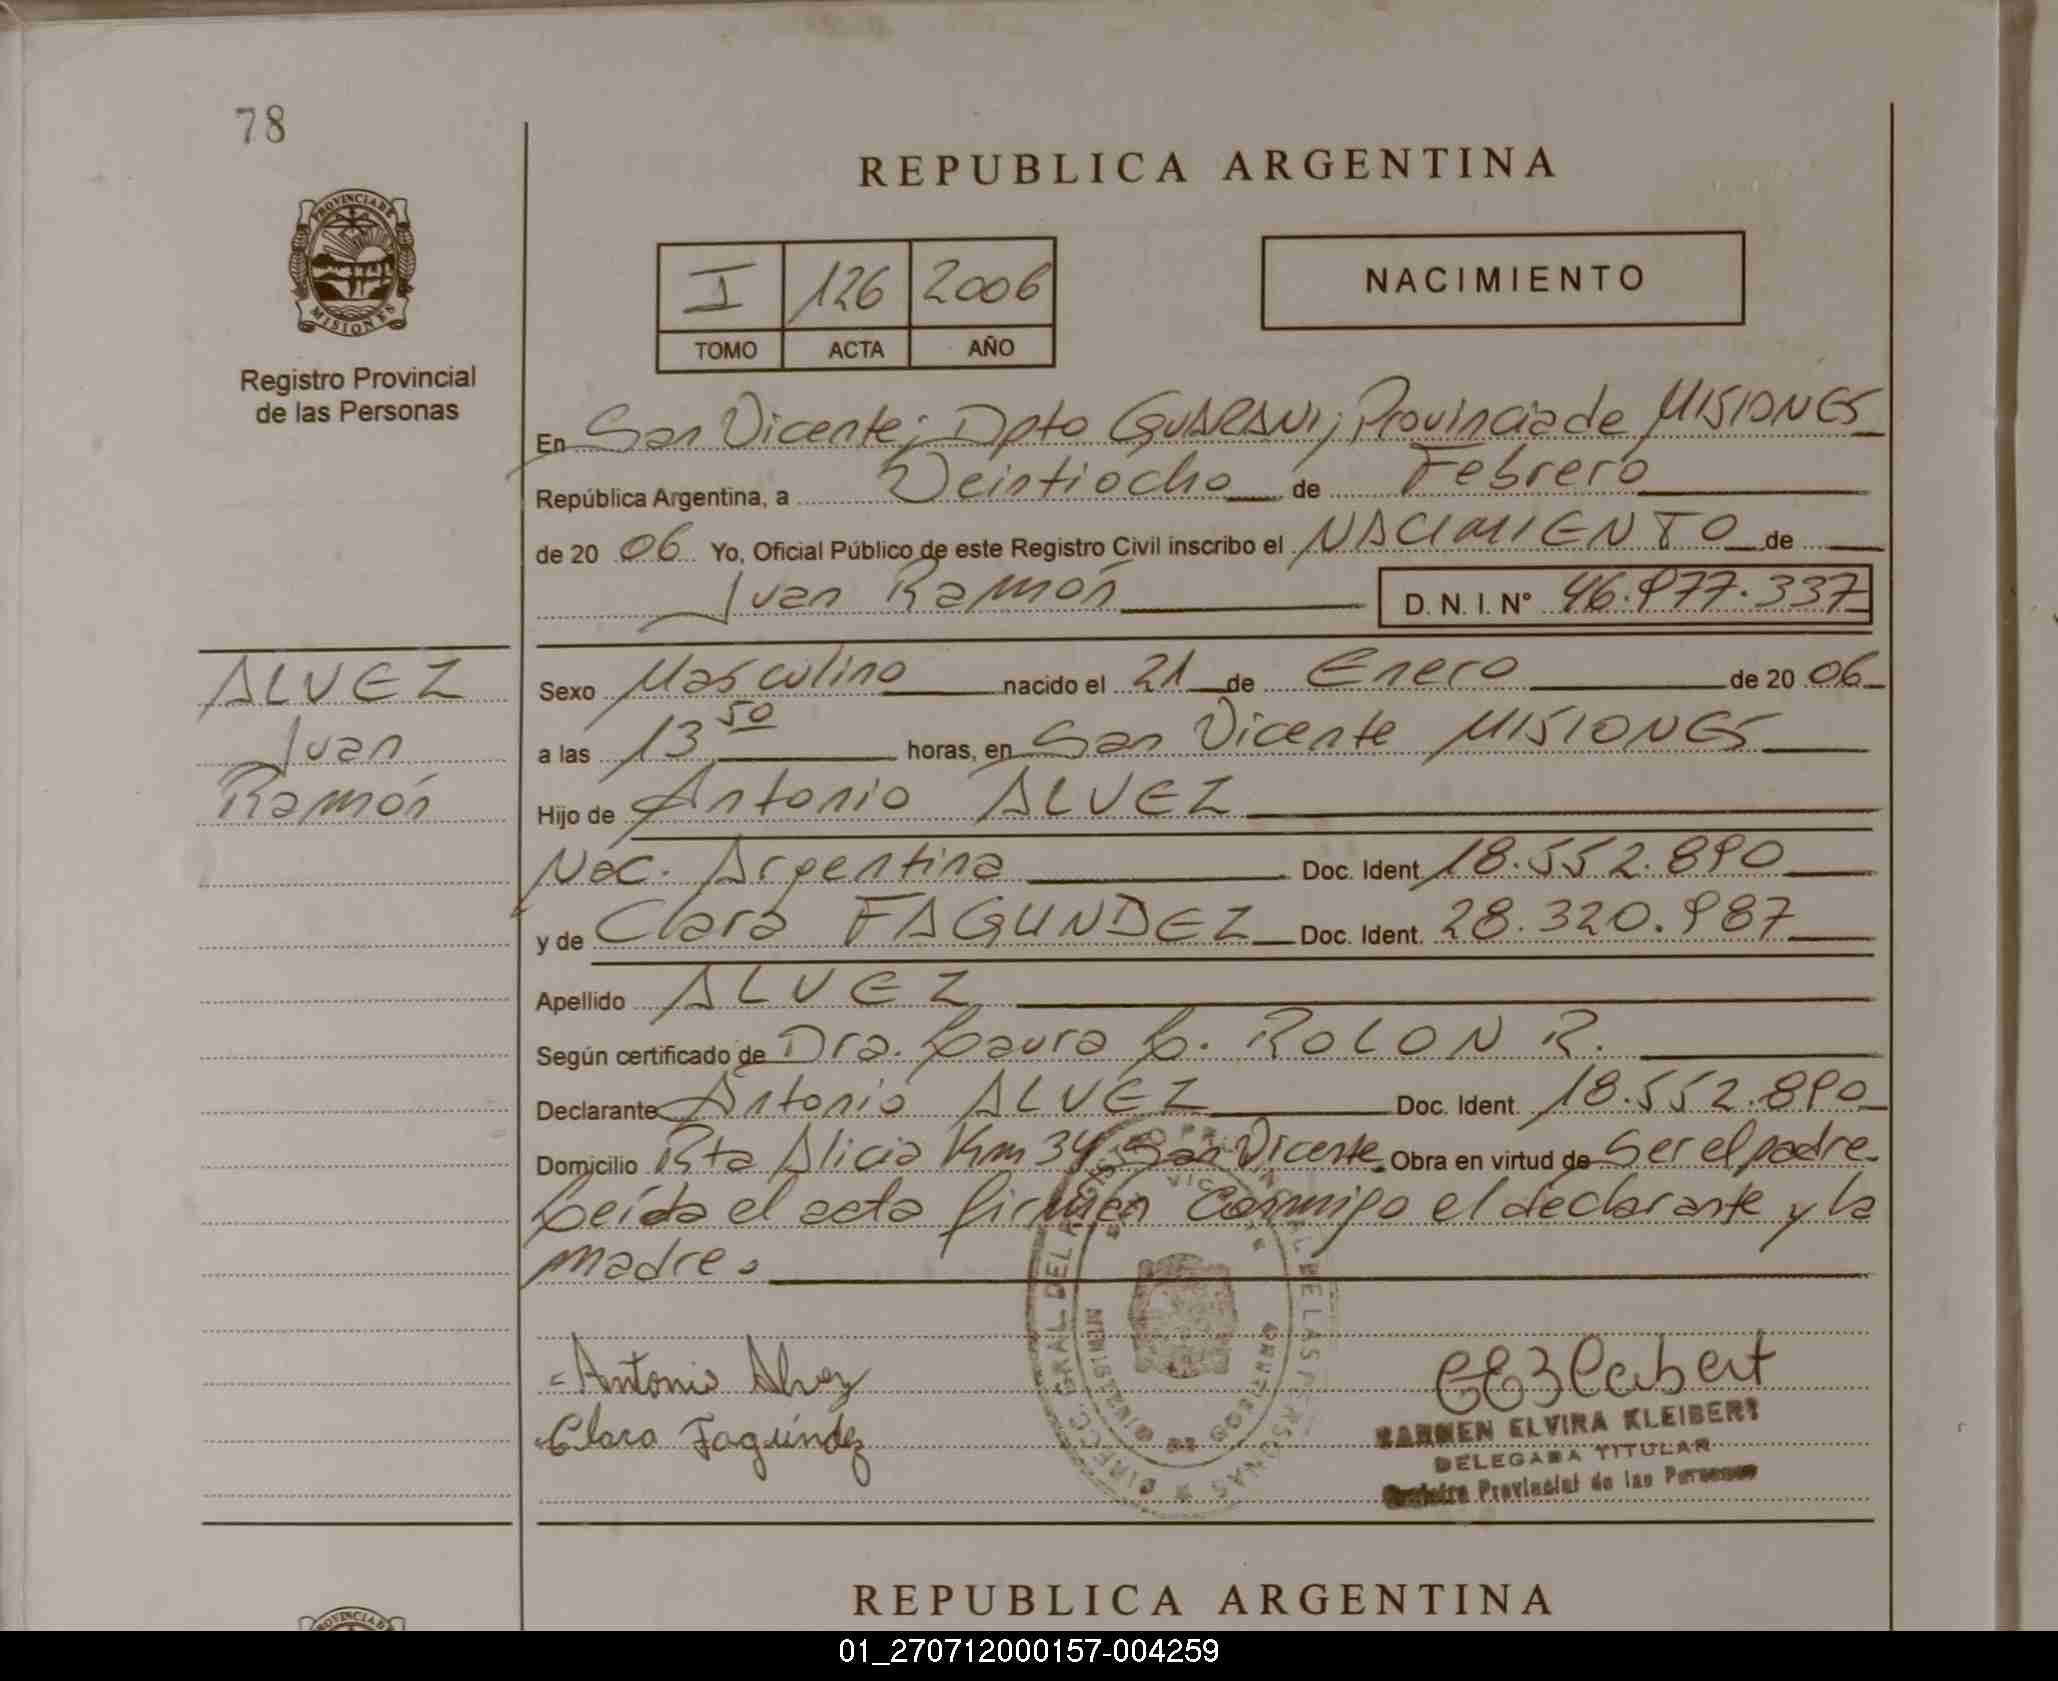 78
PROVINCIA DE
MISIONES
Registro Provincial
de las Personas
REPUBLICA ARGENTINA
I 126 2006
TOMO ACTA AÑO
NACIMIENTO
En San Vicente; Dpto GUARANI; Provincia de MISIONES
República Argentina, a Veintiocho de Febrero
de 20 06 Yo, Oficial Público de este Registro Civil inscribo el NACIMIENTO de
Juan Ramón D. N. I. N° 46.977.337
ALVEZ
Juan
Ramón
Sexo Masculino nacido el 21 de Enero de 20 06
a las 13 50 horas, en San Vicente MISIONES
Hijo de Antonio ALVEZ
Nac. Argentina Doc. Ident. 18.552.890
y de Clara FAGUNDEZ Doc. Ident. 28.320.987
Apellido ALVEZ
Según certificado de Dra. Laura L. ROLON R.
Declarante Antonio ALVEZ Doc. Ident. 18.552.890
Domicilio Rta Alicia Km 34 San Vicente Obra en virtud de Ser el padre.
Leída el acta firman conmigo el declarante y la
madre.
Antonio Alvez
Clara Fagúndez
CARMEN ELVIRA KLEIBERT
DELEGADA TITULAR
Registro Provincial de las Personas
REPUBLICA ARGENTINA
01_270712000157-004259